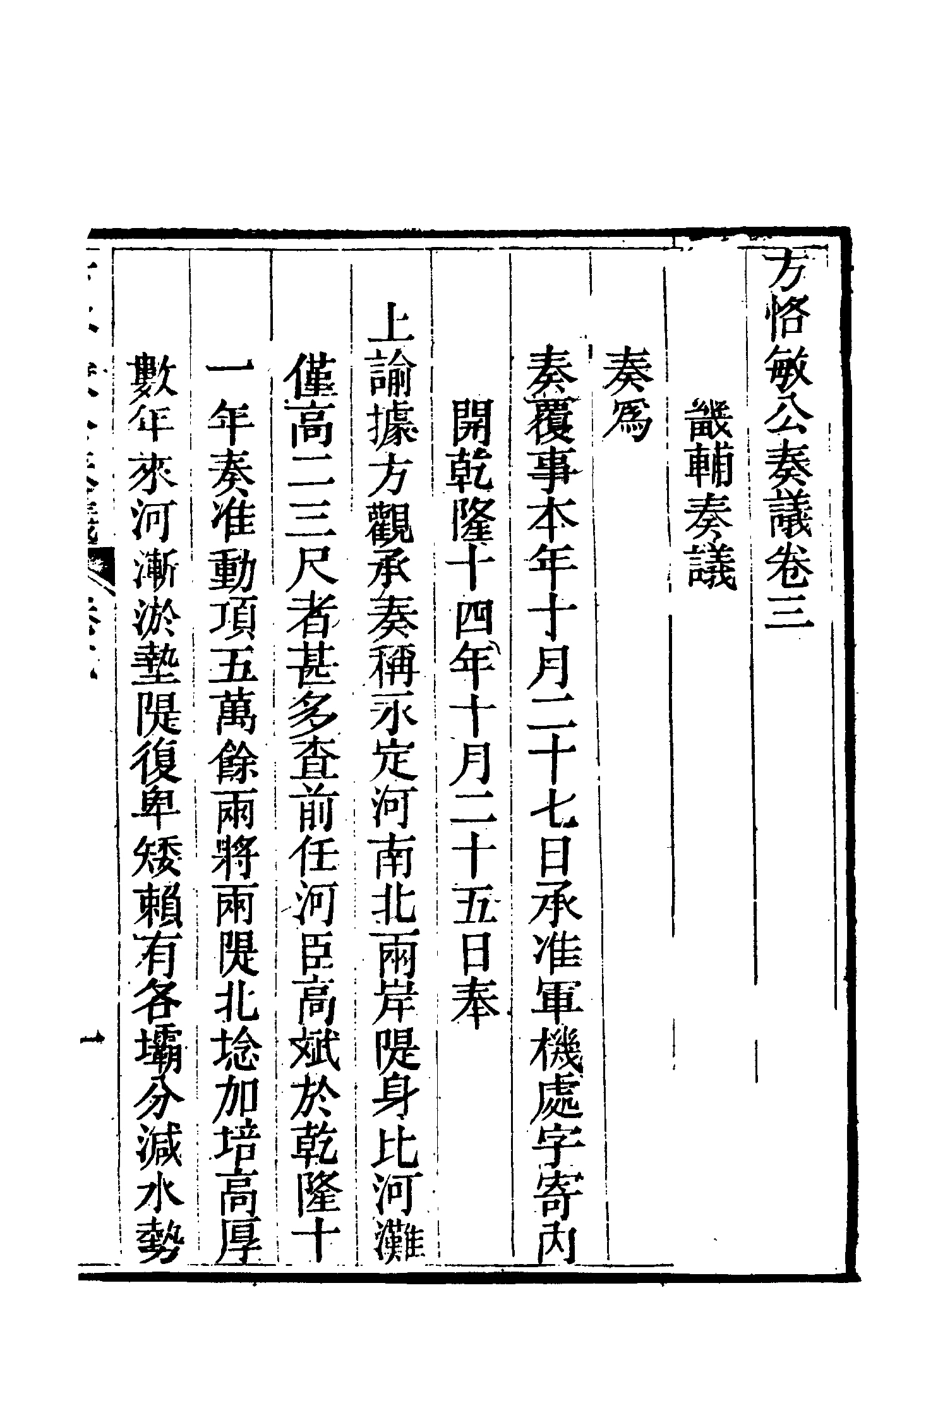 方恪敏公奏議卷三
畿輔奏議
奏爲
奏覆事本年十月二十七日承准軍機處字寄內
開乾隆十四年十月二十五日奉
上諭據方觀承奏稱永定河南北兩岸隄身比河灘
僅高二三尺者甚多查前任河臣高斌於乾隆十
一年奏准動項五萬餘兩將兩隄北埝加培高厚
數年來河漸淤墊隄復卑矮賴有各壩分減水勢